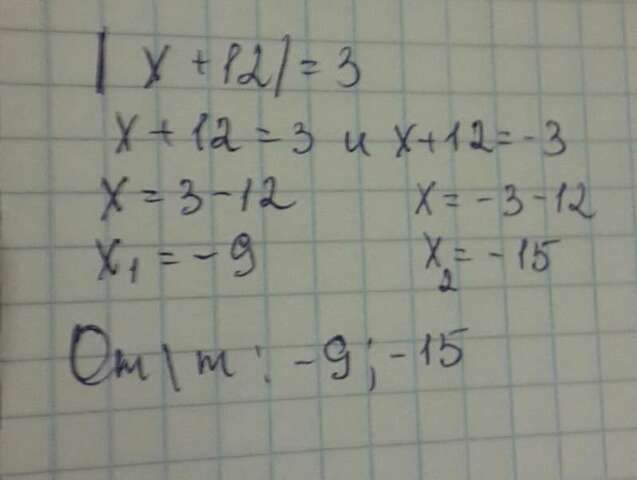 |x+12|=3
x+12=3 и x+12=-3
x=3-12 x=-3-12
x₁=-9 x₂=-15
От\т: -9; -15